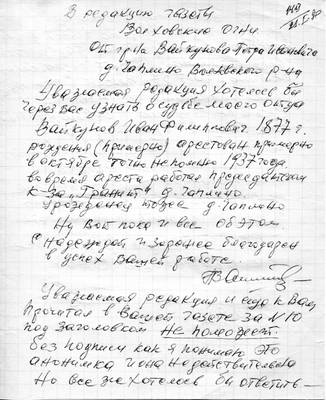 В редакцию газеты
Волховские Огни
От гр-на Вайкунова Петра Ивановича
д. Чаплино Волховского р-на
Уважаемая редакция Хотелось бы
через Вас узнать о судьбе моего отца
Вайкунов Иван Филиппович 1877 г.
рождения (примерно) арестован примерно
в октябре точно не помню 1937 года
во время ареста работал председателем
к-за "Гранит" д. Чаплино
Уроженец д. Чаплино
Ну вот пока и все об этом
С надеждой и заранее благодарен
в успех Вашей работе.
Уважаемая редакция и еще к Вам
Прочитал в Вашей газете за № 10
под заголовком Не поможет.
без подписи как я понимаю это
анонимка и она не действительна
Но все же хотелось бы ответить —